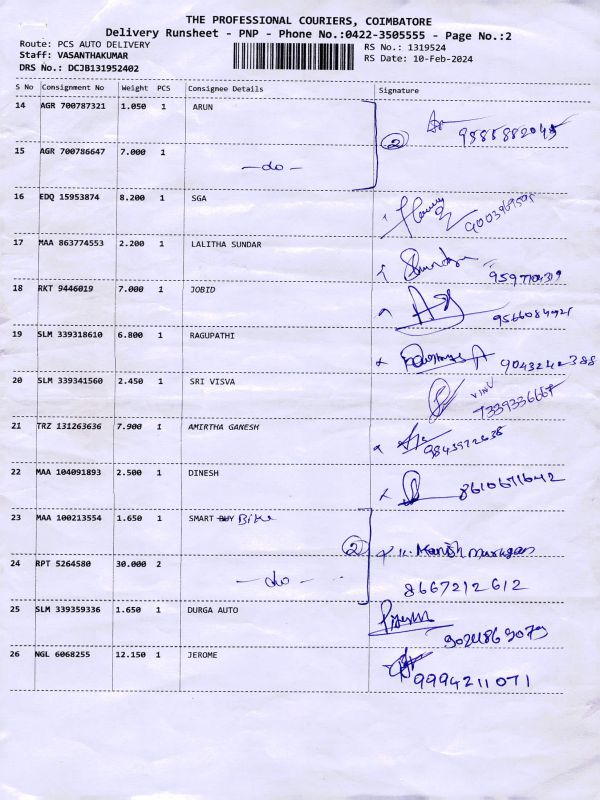 THE PROFESSIONAL COURIERS, COIMBATORE
Delivery Runsheet - PNP - Phone No.:0422-3505555 - Page No.:2
Route: PCS AUTO DELIVERY
RS No.: 1319524
Staff: VASANTHAKUMAR
RS Date: 10-Feb-2024
DRS No.: DCJB131952402
S No Consignment No Weight PCS Consignee Details Signature
14 AGR 700787321 1.050 1 ARUN
2
15 AGR 700786647 7.000 1
-do-
16 EDQ 15953874 8.200 1 SGA
17 MAA 863774553 2.200 1 LALITHA SUNDAR
18 RKT 9446019 7.000 1 JOBID
19 SLM 339318610 6.800 1 RAGUPATHI 9043242388
20 SLM 339341560 2.450 1 SRI VISVA VINU
7339336667
21 TRZ 131263636 7.900 1 AMIRTHA GANESH
22 MAA 104091893 2.500 1 DINESH 8610671642
23 MAA 100213554 1.650 1 SMART BUY Bike
2
24 RPT 5264580 30.000 2
-do- 8667212612
25 SLM 339359336 1.650 1 DURGA AUTO
26 NGL 6068255 12.150 1 JEROME
9994211071